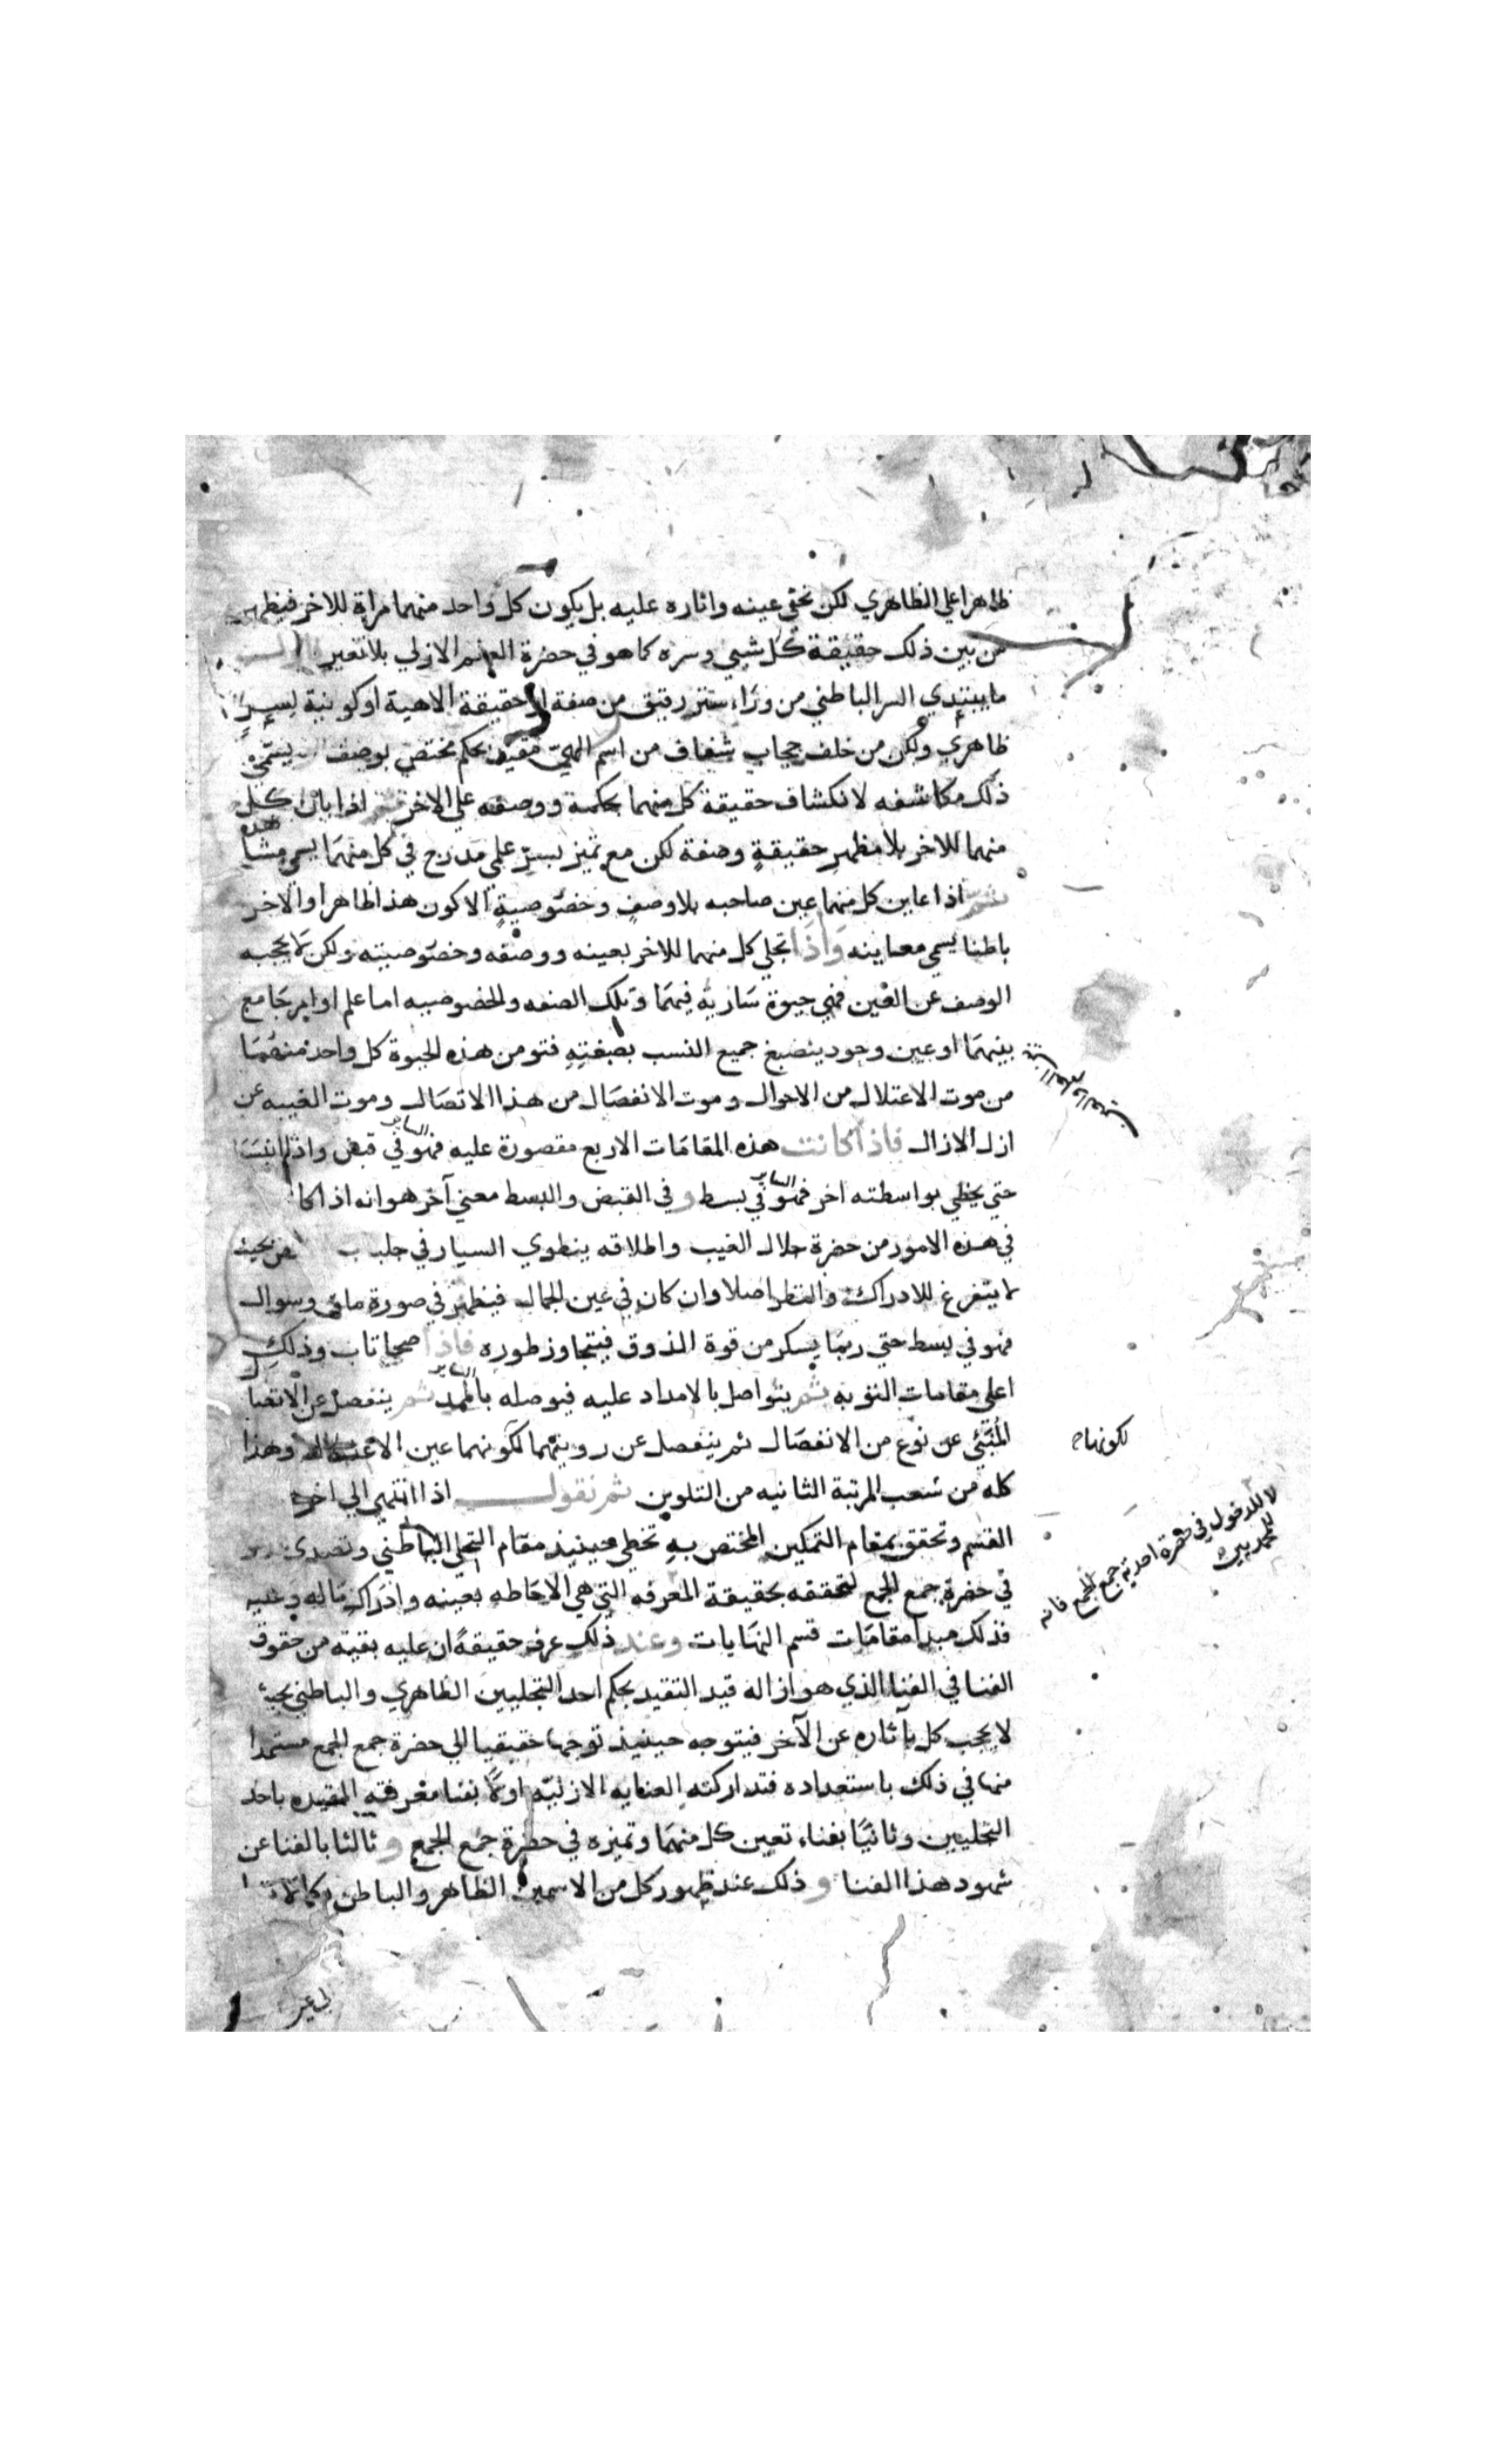 ظاهرا علي الظاهري لكن نحو عينه واثاره عليه بل يكون كل واحد منهما مراة للاخر فيظهر
من بين ذلك حقيقة كل شيي وسره كما هو في حضرة العلم الازلي بلا تغير
ما يبتدي السر الباطني من ورا، ستر رقيق من صفة او حقيقة الاهية او كونية لسرٍ
ظاهري ولكن من خلف حجاب شفاف من اسم الهيّ مقيّد بحكم مختص بوصف يسمّي
ذلك مكاشفه لانكشاف حقيقة كل منهما بحكمه ووصفه علي الاخر اذا باين كل
منهما للاخر بلا مظهر حقيقةٍ وصفة لكن مع تميز بسرّ علمي مدرج في كل منهمَا يسمي مشا
هده
ثمّ اذا عاين كل منهما عين صاحبه بلا وصفٍ وخصوصيةٍ الا كون هذا ظاهرا والاخر
باطنا يسمي معاينه وَاذَا تجلي كل منهما للاخر بعينه ووصفه وخصوصيته ولكن لا يحجبه
الوصف عن العين فهي حيوة سَارية فيهمَا وتلك الصفه والخصوصيه اما علم او امر جَامع
بينهمَا او عين وجود ينصبغ جميع النسب بصبغتهِ فتومن هذه الحيوة كل واحد منهُمَا
من موت الاعتلال من الاحوال وموت الانفصَال من هذا الاتصَال وموت الغيبه عن
ازل الازال فاذا كانت هذه المقامَات الاربع مقصورة عليه فهو في قبض واذا انبسَتَ
السائر
حتي يحظي بواسطته اخر فهو في بسط وفي القبض والبسط معني آخر هو انه اذا كا
السائر
في هذه الامور من حضرة جلال الغيب واطلاقه ينطوي السيار في بحيث
لا يتفرغ للادراك والنظر اصلا وان كان في عين الجمال فيظهر في صورة وسوال
فهو في بسط حتي ربمَا يسكر من قوة الذوق فيتجاوز طوره فاذا صحا تاب وذلك
اعلي مقامات التوبه ثم يتواصل بالامداد عليه فيوصله بالممد ثم ينفصل عن الاتصا
السائر
المُنبّئي عن نوع من الانفصَال ثم ينفصل عن رويتهما لكونهما عين الاعتلال وهذا
كله من شعب المرتبة الثانيه من التلوين ثم نقول اذا انتهي الي اخر
القسم وتحقق بمقام التمكين المختص بهِ تخطي حينيذ مقام التجلي الباطني وتصدي
في حضرة جمع الجمع لتحققه بحقيقة المعرفه التي هي الاحَاطه بعينه وادراك ماله وعليه
فذلك مبدا مقامَات قسم النهَايات وعند ذلك عرف حقيقةً ان عليه بقية من حقوق
الفنا في الفنا الذي هو ازاله قيد التقيد بحكم احد التجليين الظاهري والباطني بحيث
لا يحجب كل بآثاره عن الآخر فيتوجه حينيذ توجها حقيقيا الي حضرة جمع الجمع مستمدا
منها في ذلك باستعداده فتداركته العنايه الازليّه اولًا بفنا معرفته المقيده باحد
التجليين وثانيًا بفناء تعين كل منهمَا وتميزه في حضرة جمع الجمع وثالثا بالفنا عن
شهود هذا الفنا وذلك عند ظهور كل من الاسمين الظاهر والباطن بكمالا
لكونها
لا للدخول في حضرة احدية جمع الجمع فانه
للمحمديين